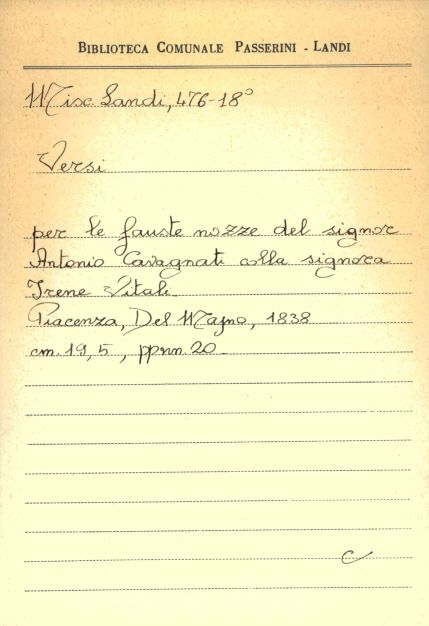 BIBLIOTECA COMUNALE PASSERINI - LANDI
Misc Landi, 476-18°
Versi
per le fauste nozze del signor
Antonio Cavagnati colla signora
Irene Vitali
Piacenza, Del Majno, 1838
cm. 19,5, ppnn. 20
C